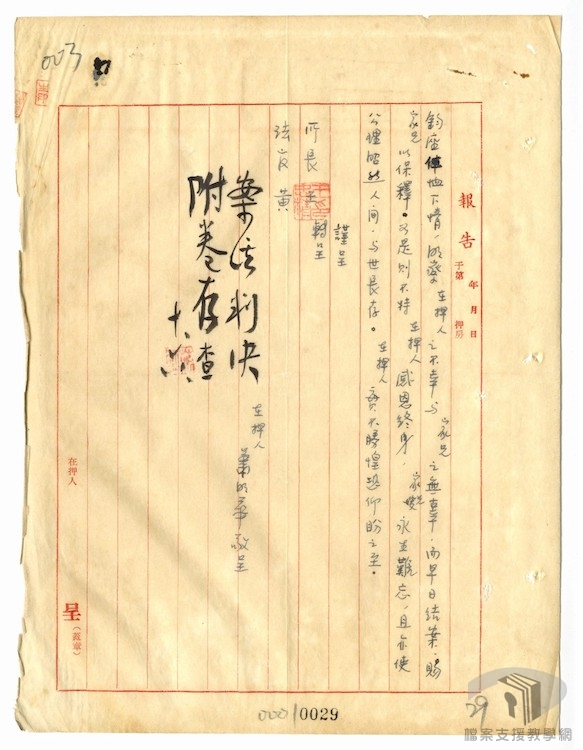 003
報告 年 月 日
于第 押房
鈞座俾恤下情,明察在押人之不幸与家兄之無辜,而早日結案,賜
家兄以保釋。如是則不特在押人感恩終身,家兄 永並難忘,且亦使
公理昭然人间,与世長存。在押人實不勝惶恐仰盼之至。
謹呈
所長王 轉呈
法官黃
案该判决
附卷存查
在押人
萧明華敬呈
在押人
呈(蓋章)
000/0029
29
檔案支援教學網